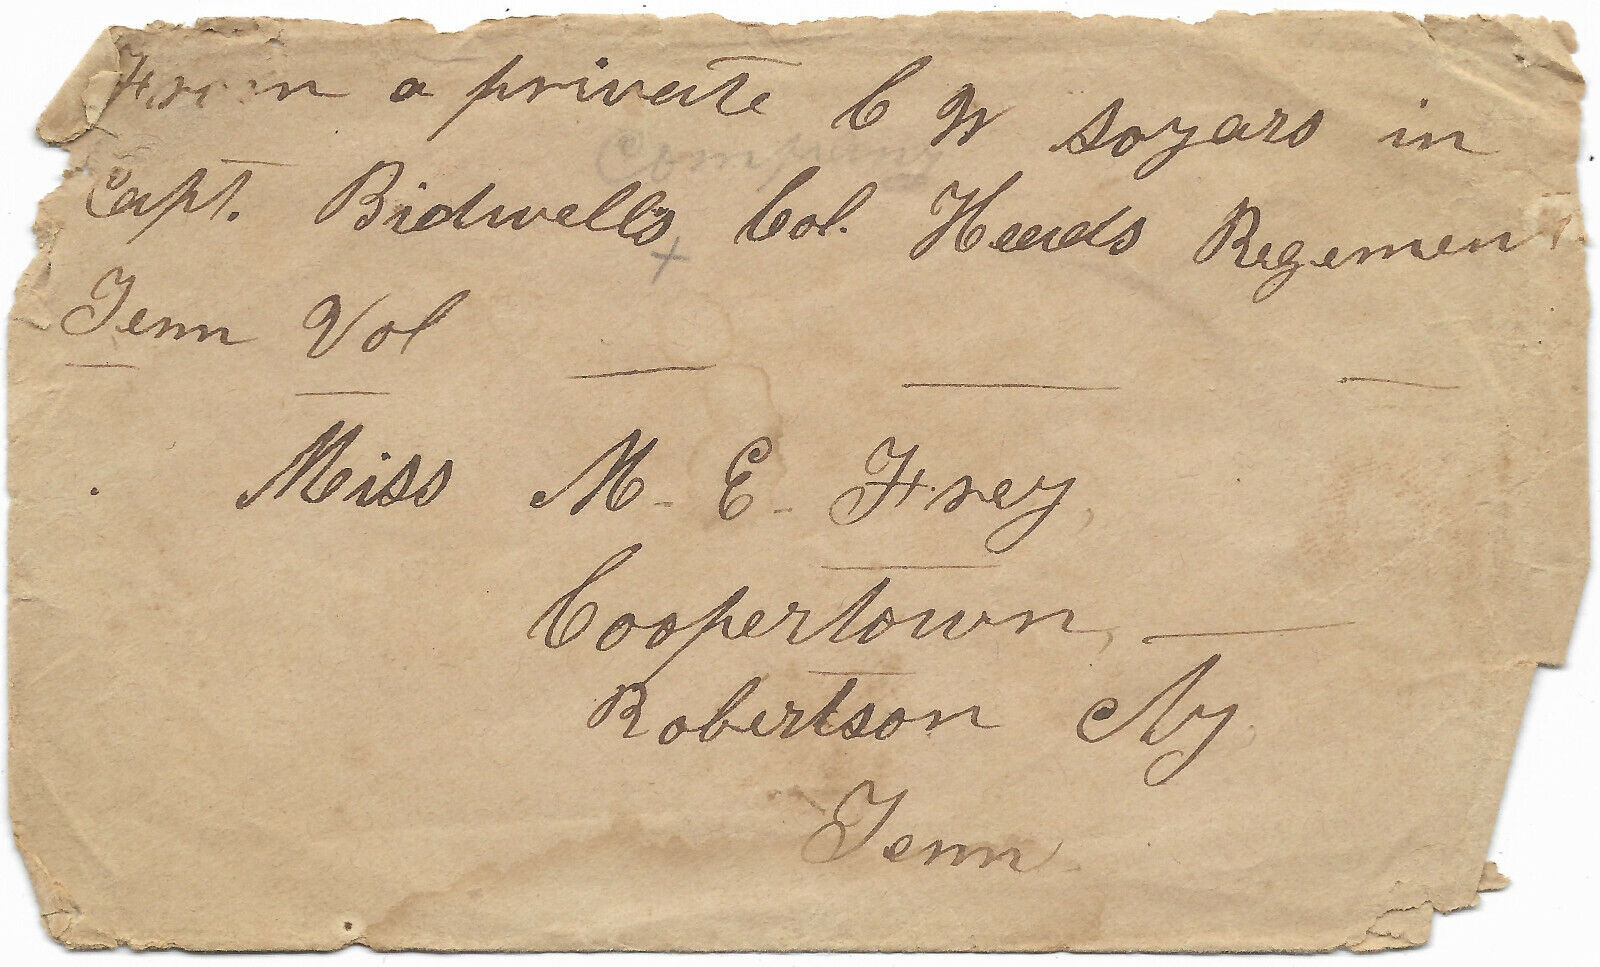 From a private C W Soyars in
Company
Capt. Bidwell's Col. Heads Regemen
Tenn Vol
Miss M. E. Frey,
Coopertown,
Robertson Cty
Tenn